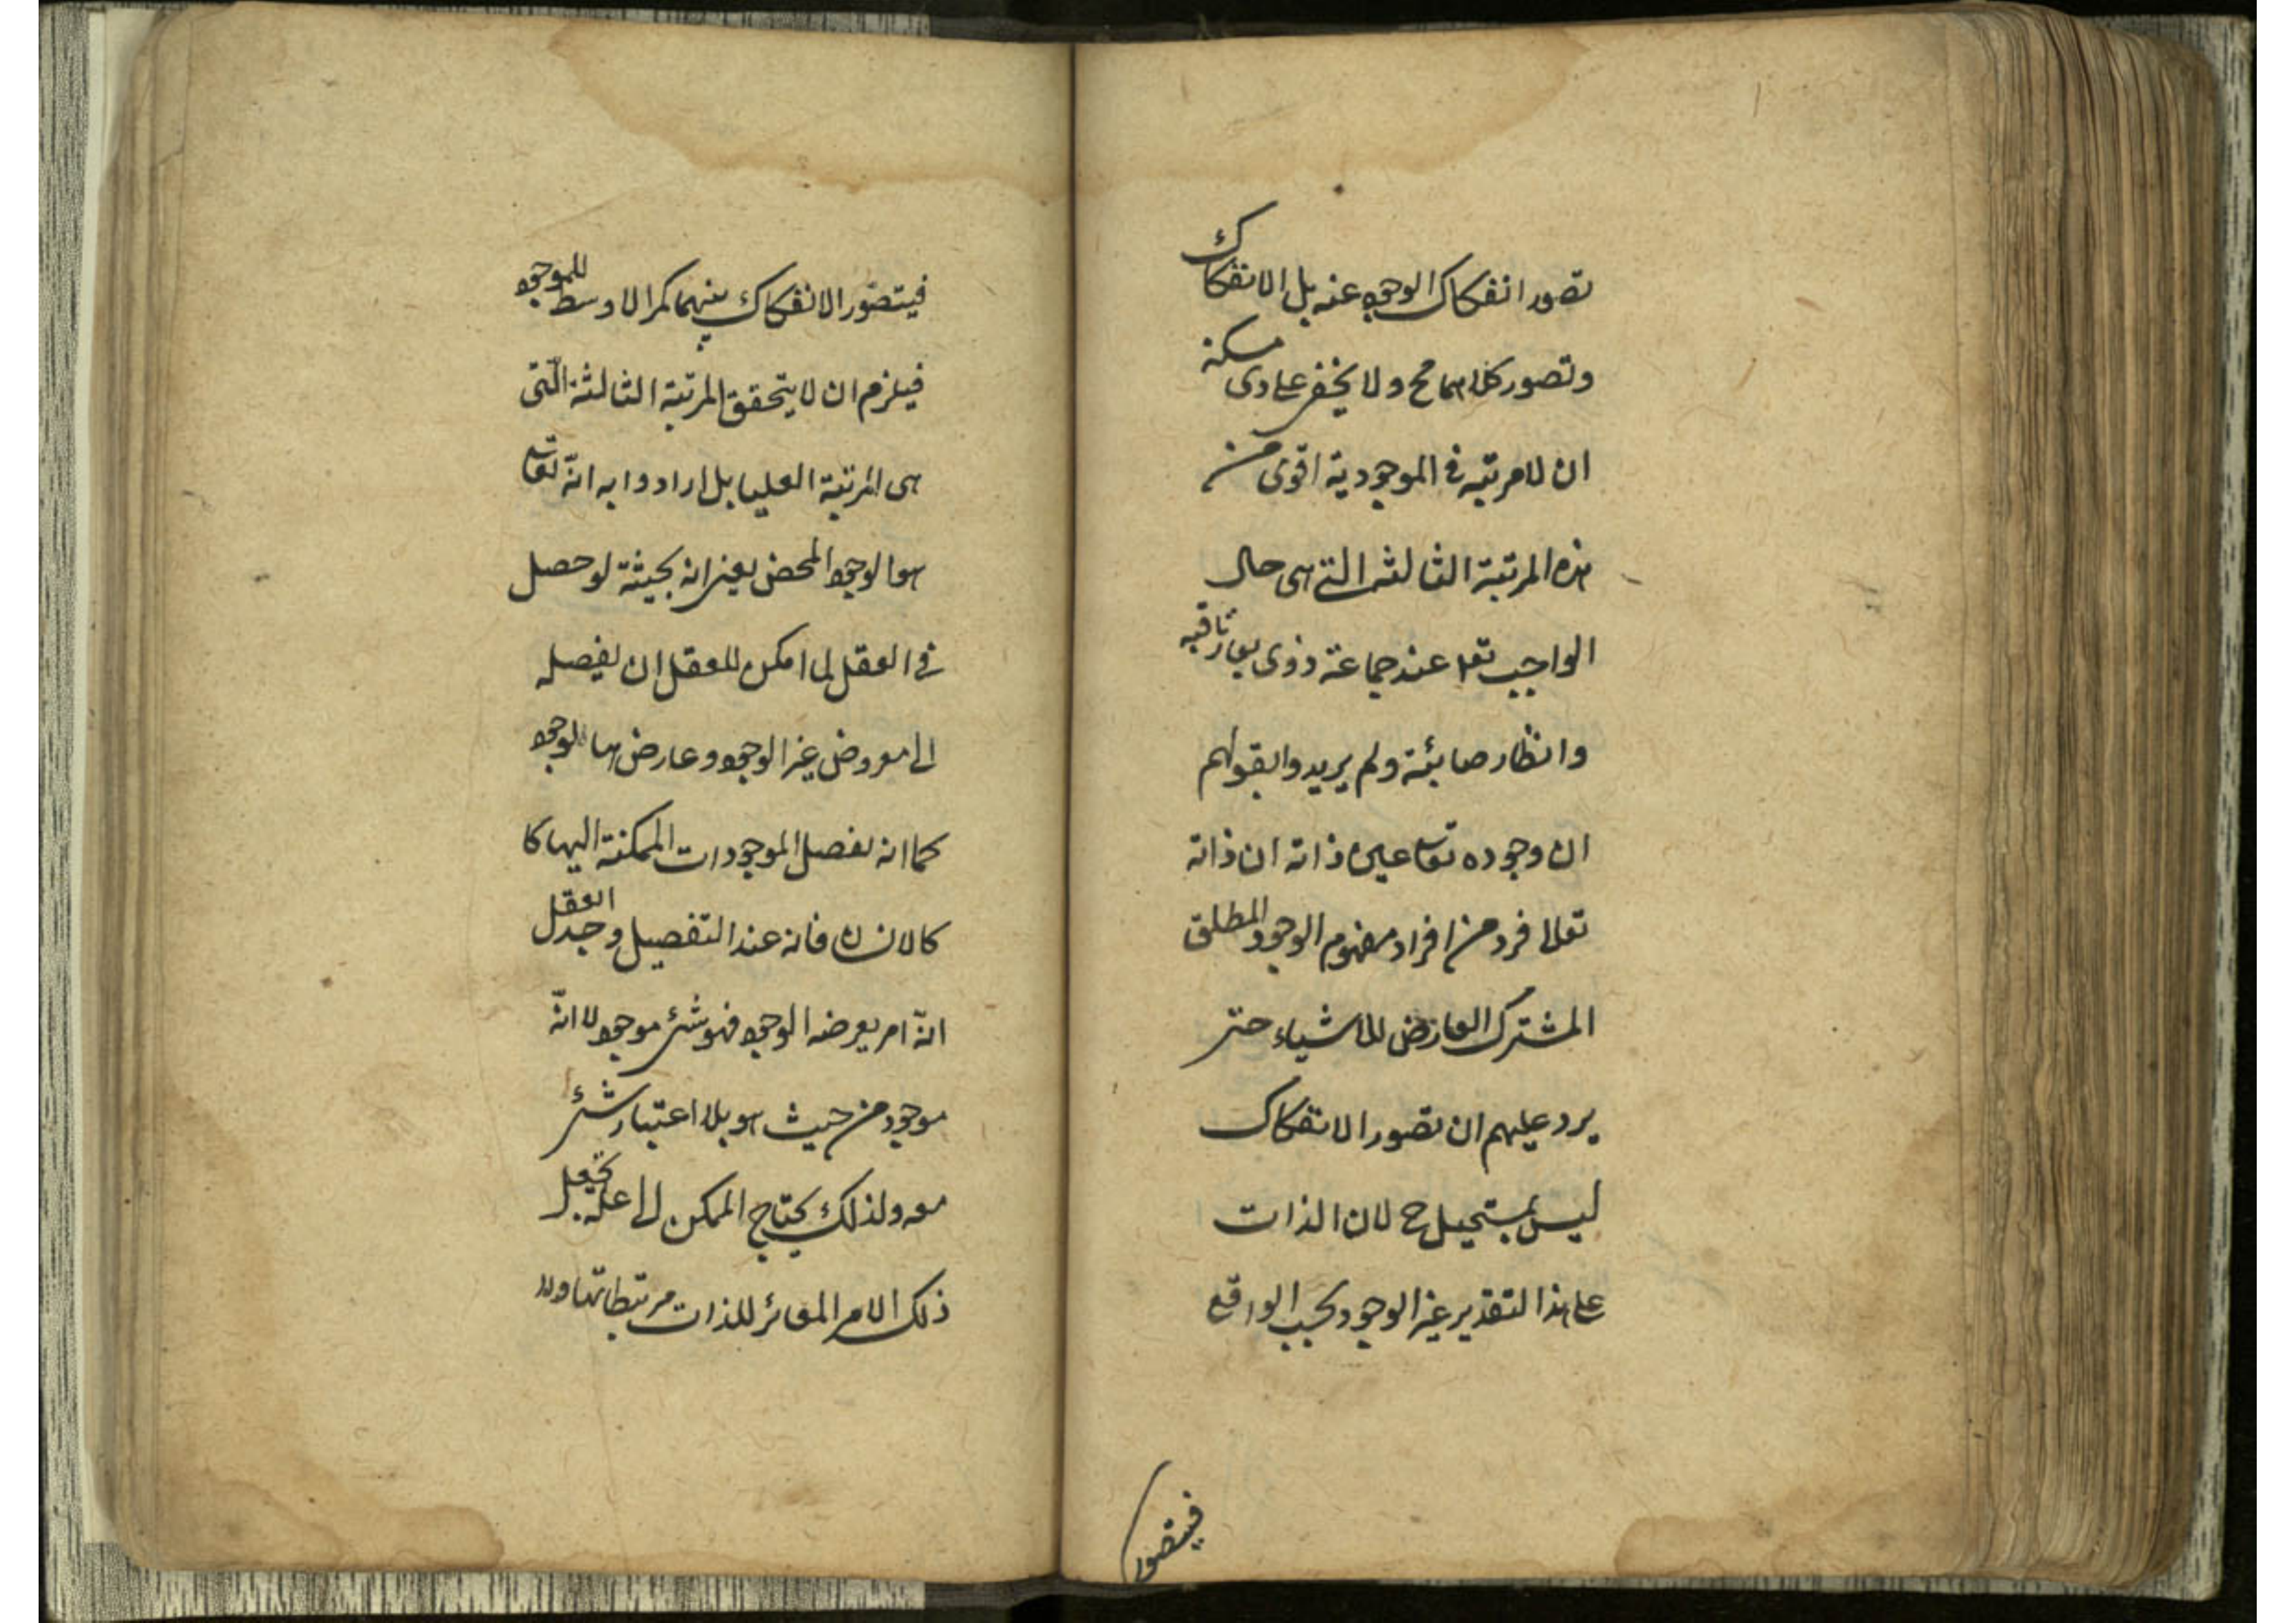 تصور انفكاك الوجود عنه بل الانفكاك
وتصور كلاهما مح ولا يخفى على ذى مسكة
ان لا مرتبه فى الموجودية اقوى من
هذه المرتبة الثالثه التى هى حال
الواجب تعا عند جماعة ذوى بصائر ثاقبه
وانظار صائبة ولم يريدوا بقولهم
ان وجوده تعالى عين ذاته ان ذاته
تعالى فرد من افراد مفهوم الوجود المطلق
المشترك العارض للاشياء حتى
يرد عليهم ان تصور الانفكاك
ليس بمستحيل ح لان الذات
على هذا التقدير غير الوجود بحسب الواقع
فيتصور
فيتصوّر الانفكاك بينهما كمرالاوسط للموجود
فيلزم ان لا يتحقق المرتبة الثالثة الّتى
هى المرتبة العليا بل ارادوا به انّه تعالى
هو الوجود المحض يعنى انه بحيثة لو حصل
فى العقل لما امكن للعقل ان يفصله
الى معروض غير الوجود وعارض هما الوجود
كما انه يفصل الموجودات الممكنة اليهما كا
كالانسان فانه عند التفصيل وجد العقل
انّه امر يعرضه الوجود فهو شئ موجود لا انّه
موجود من حيث هو بلا اعتبار شئ
معه ولذلك يحتاج الممكن الى علة تجعل
ذلك الامر المغائر للذات مرتبطا بها ولا